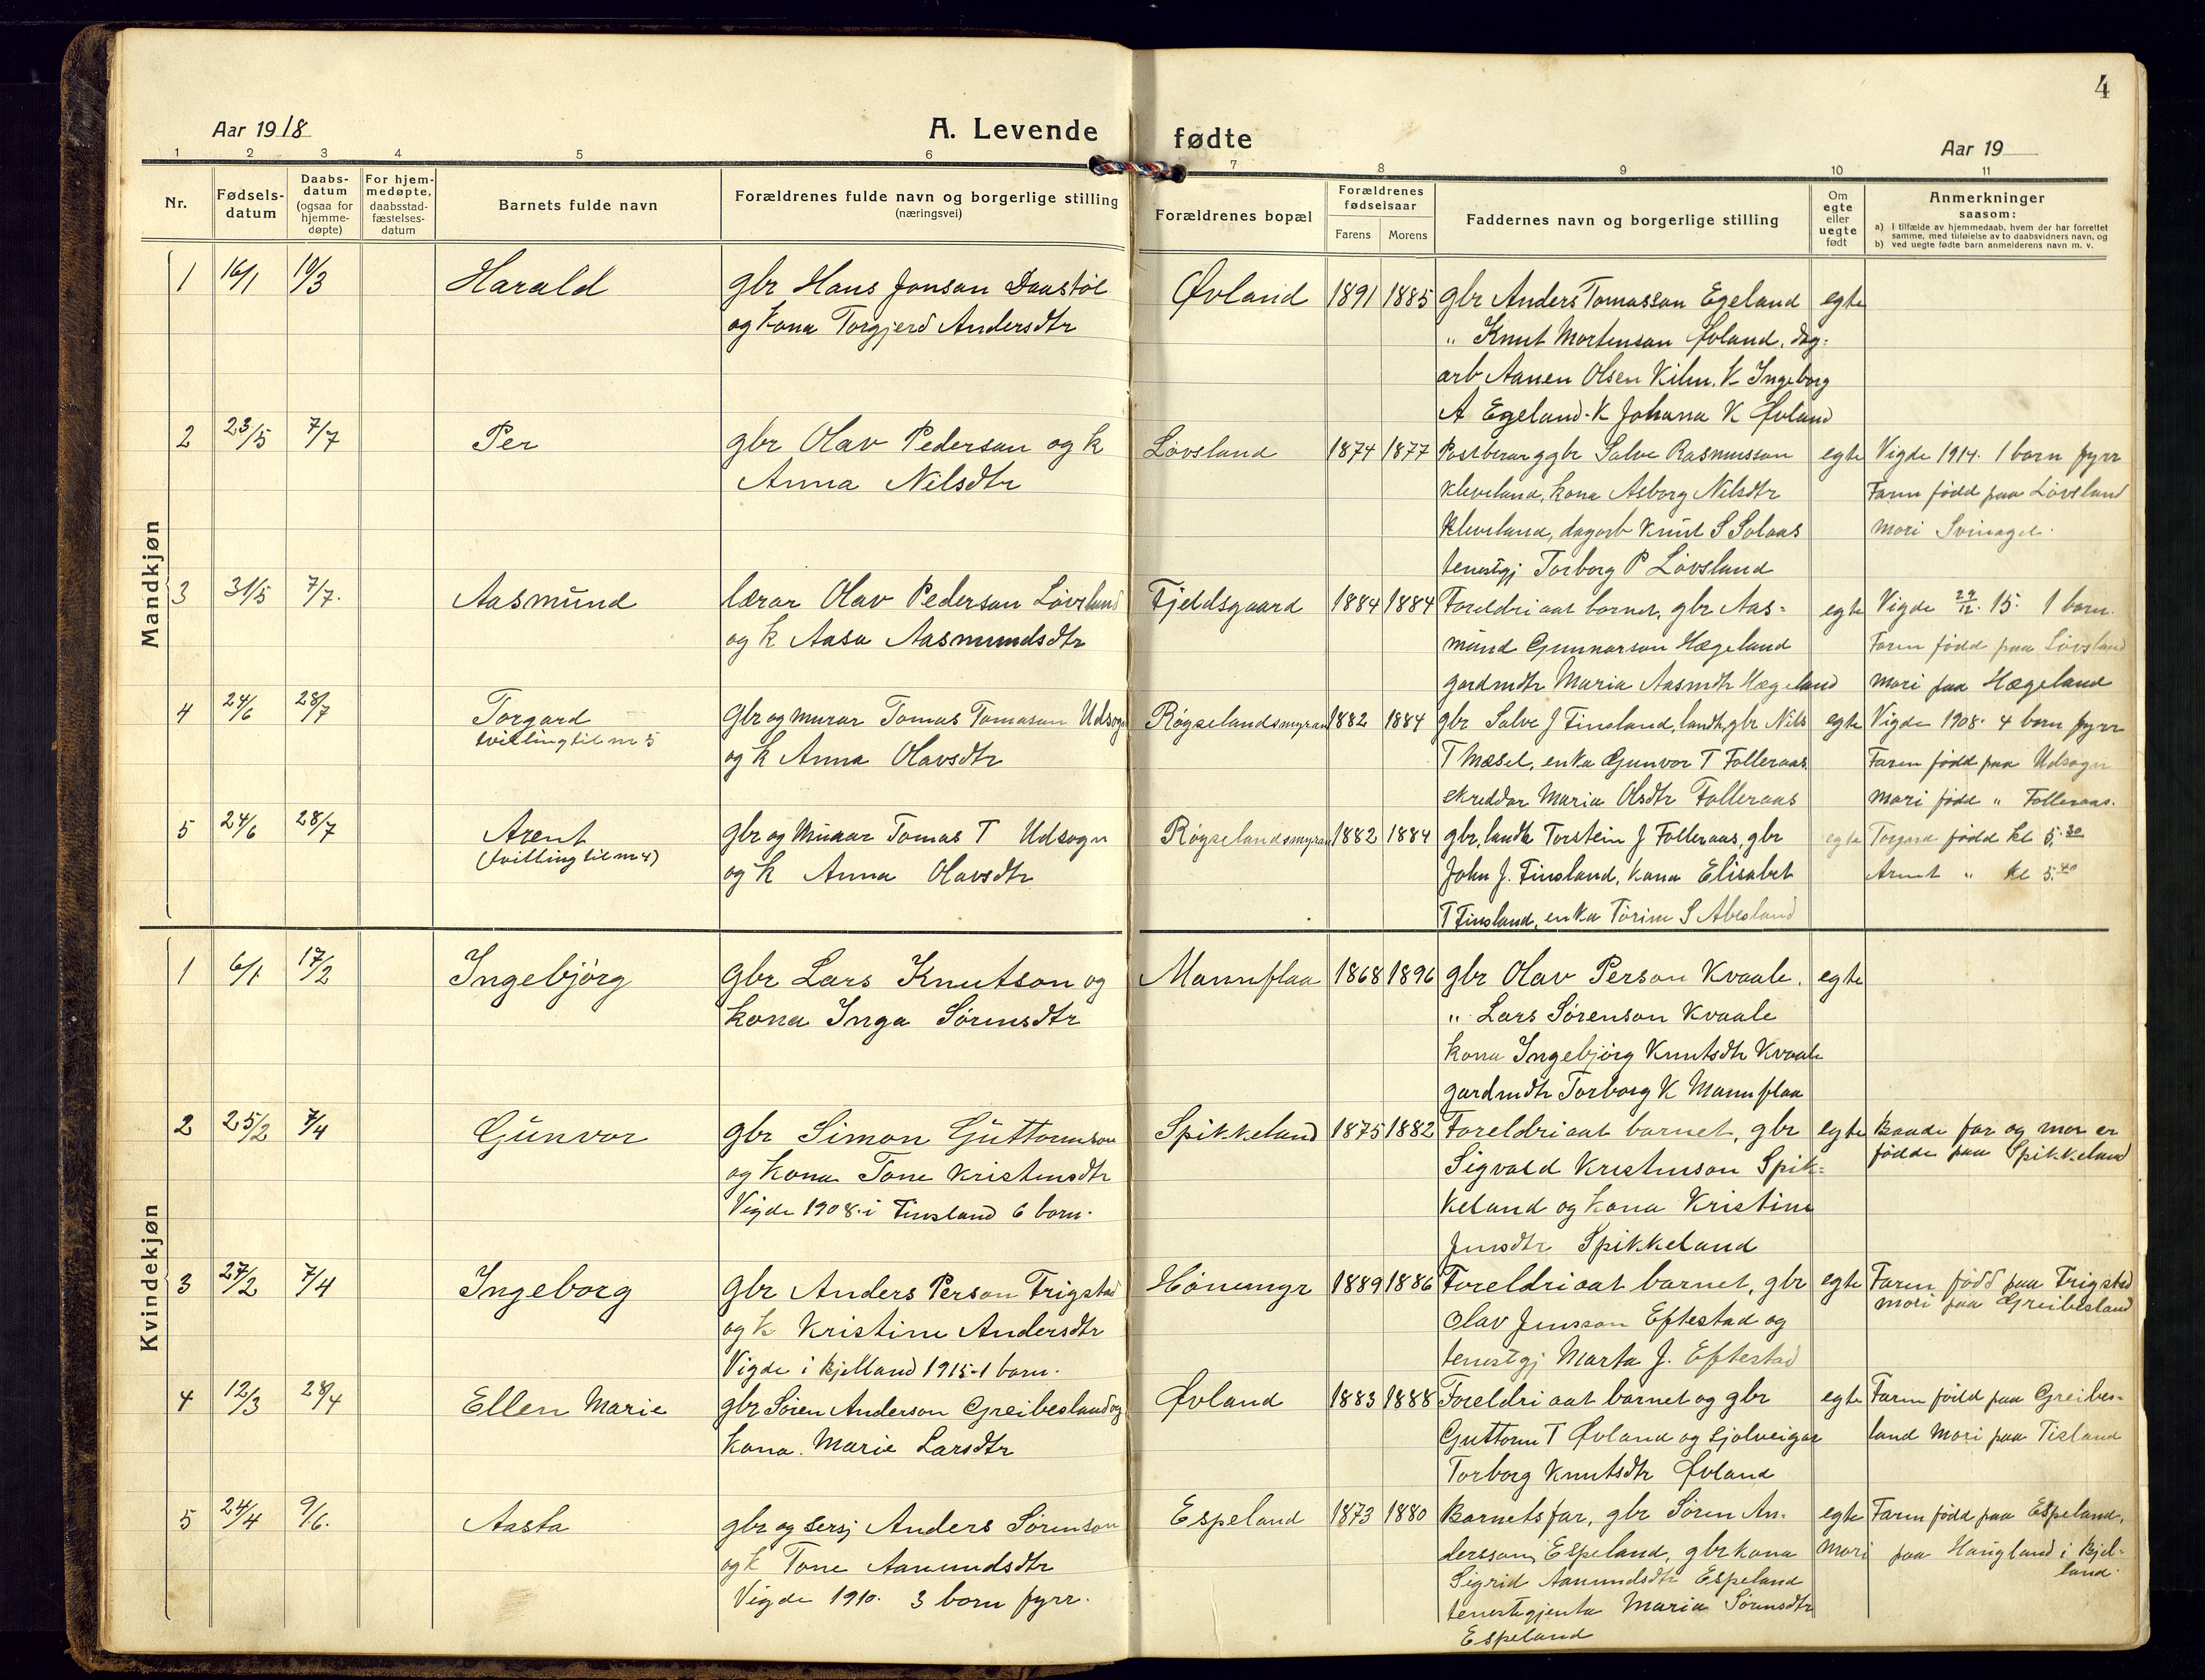 4
Aar 1918
A. Levende
fødte
Aar 19
1 2 3 4 5 6 7 8 9 10 11
Nr.
Fødsels-
datum
Daabs-
datum
(ogsaa for
hjemme-
døpte)
For hjem-
medøpte,
daabsstad-
fæstelses-
datum
Barnets fulde navn
Forældrenes fulde navn og borgerlige stilling
(næringsvei)
Forældrenes bopæl
Forældrenes
fødselsaar
Farens Morens
Faddernes navn og borgerlige stilling
Om
egte
eller
uegte
født
Anmerkninger
saasom:
a) I tilfælde av hjemmedaab, hvem der har forrettet
samme, med tilføielse av to daabsvidners navn, og
b) ved uegte fødte barn anmelderens navn m. v.
Mandkjøn
1 16/1 10/3 Harald gbr Hans Jonson Daastøl Øvland 1891 1885 gbr Anders Tomasson Egeland egte
og kona Torgjerd Andersdtr " Knut Mortenson Øvland, dag-
arb Aanen Olsen Kiln. K Ingeborg
A Egeland. K Johana K Øvland
2 23/5 7/7 Per gbr Olav Pederson og k Løvsland 1874 1877 Postberar g gbr Salve Rasmusson egte Vigde 1914. 1 born fyrr
Anna Nilsdtr Kleveland, kona Asborg Nilsdtr Faren fødd paa Løvsland
Kleveland, dagarb Knut S Solaas mori
tenestgj Torborg P Løvsland
3 31/5 7/7. Aasmund lærar Olav Pederson Løvsland Fjeldsgaard 1884 1884 Foreldri aat barnet, gbr Aas- egte Vigde 29/12. 15. 1 born.
og k Aasa Aasmundsdtr mund Gunnarson Hægeland Faren fødd paa Løvsland
gardmdtr Maria Aasmdtr Hægeland mori paa Hægeland
4 24/6 28/7 Torgard Gbr og murar Tomas Tomason Udsogn Røgselandsmyran 1882 1884 gbr Salve J Finsland, landh, gbr Nils egte Vigde 1908. 4 born fyrr
tvilling til nr 5 og k Anna Olavsdtr T Mæsel, enka Gunvor T Folleraas Faren fødd paa Udsogn
skreddar Maria Olsdtr Folleraas mori fødd " Folleraas.
5 24/6 28/7 Arent gbr og Murar Tomas T Udsogn Røgselandsmyran 1882 1884 gbr, landh Torstein J Folleraas, gbr egte Torgard fødd kl 5.30
(tvilling til nr 4) og k Anna Olavsdtr John J. Finsland, kona Elisabet Arent " kl 5.40
T Finsland, enka Torine S Abesland
Kvindekjøn
1 6/1 17/2 Ingebjørg Gbr Lars Knutson og Mannflaa 1868 1896 gbr Olav Person Kvaale. egte
kona Inga Sørensdtr " Lars Sørenson Kvaale
kona Ingebjørg Knutsdtr Kvaale
gardmdtr Torborg K Mannflaa
2 25/2 7/4 Gunvor gbr Simon Guttormson Spikkeland 1875 1882 Foreldri aat barnet, gbr egte Baade far og mor er
og kona Tone Kristensdtr Sigvald Kristenson Spik- fødde paa Spikkeland
Vigde 1908. i Finsland 6 born. keland og kona Kristine
Jensdtr Spikkeland
3 27/2 7/4 Ingeborg Gbr Anders Person Frigstad Hønemyr 1889 1886 Foreldri aat barnet, gbr egte Faren fødd paa Frigstad
og k Kristine Andersdtr Olav Jensson Eftestad og mori paa Greibesland
Vigde i Bjelland 1915-1 born. tenestgj Marta J. Eftestad
4 12/3 28/4 Ellen Marie gbr Søren Anderson Greibesland og Øvland 1883 1888 Foreldri aat barnet og gbr egte Faren fødd paa Greibes-
kona. Marie Larsdtr Guttorm T Øvland og sjolveigar land Mori paa Tisland
Torborg Knutsdtr Øvland
5 24/4 9/6. Aasta gbr og sersj Anders Sørenson Espeland 1873 1880 Barnets far, gbr Søren An- egte Faren fødd paa Espeland,
og k Tone Aanundsdtr dersson Espeland, gbr kona Mori paa Haugland i Bjel-
Vigde 1910. 3 born fyrr. Sigrid Aanundsdtr Espeland land.
tenestgjenta Maria Sørensdtr
Espeland